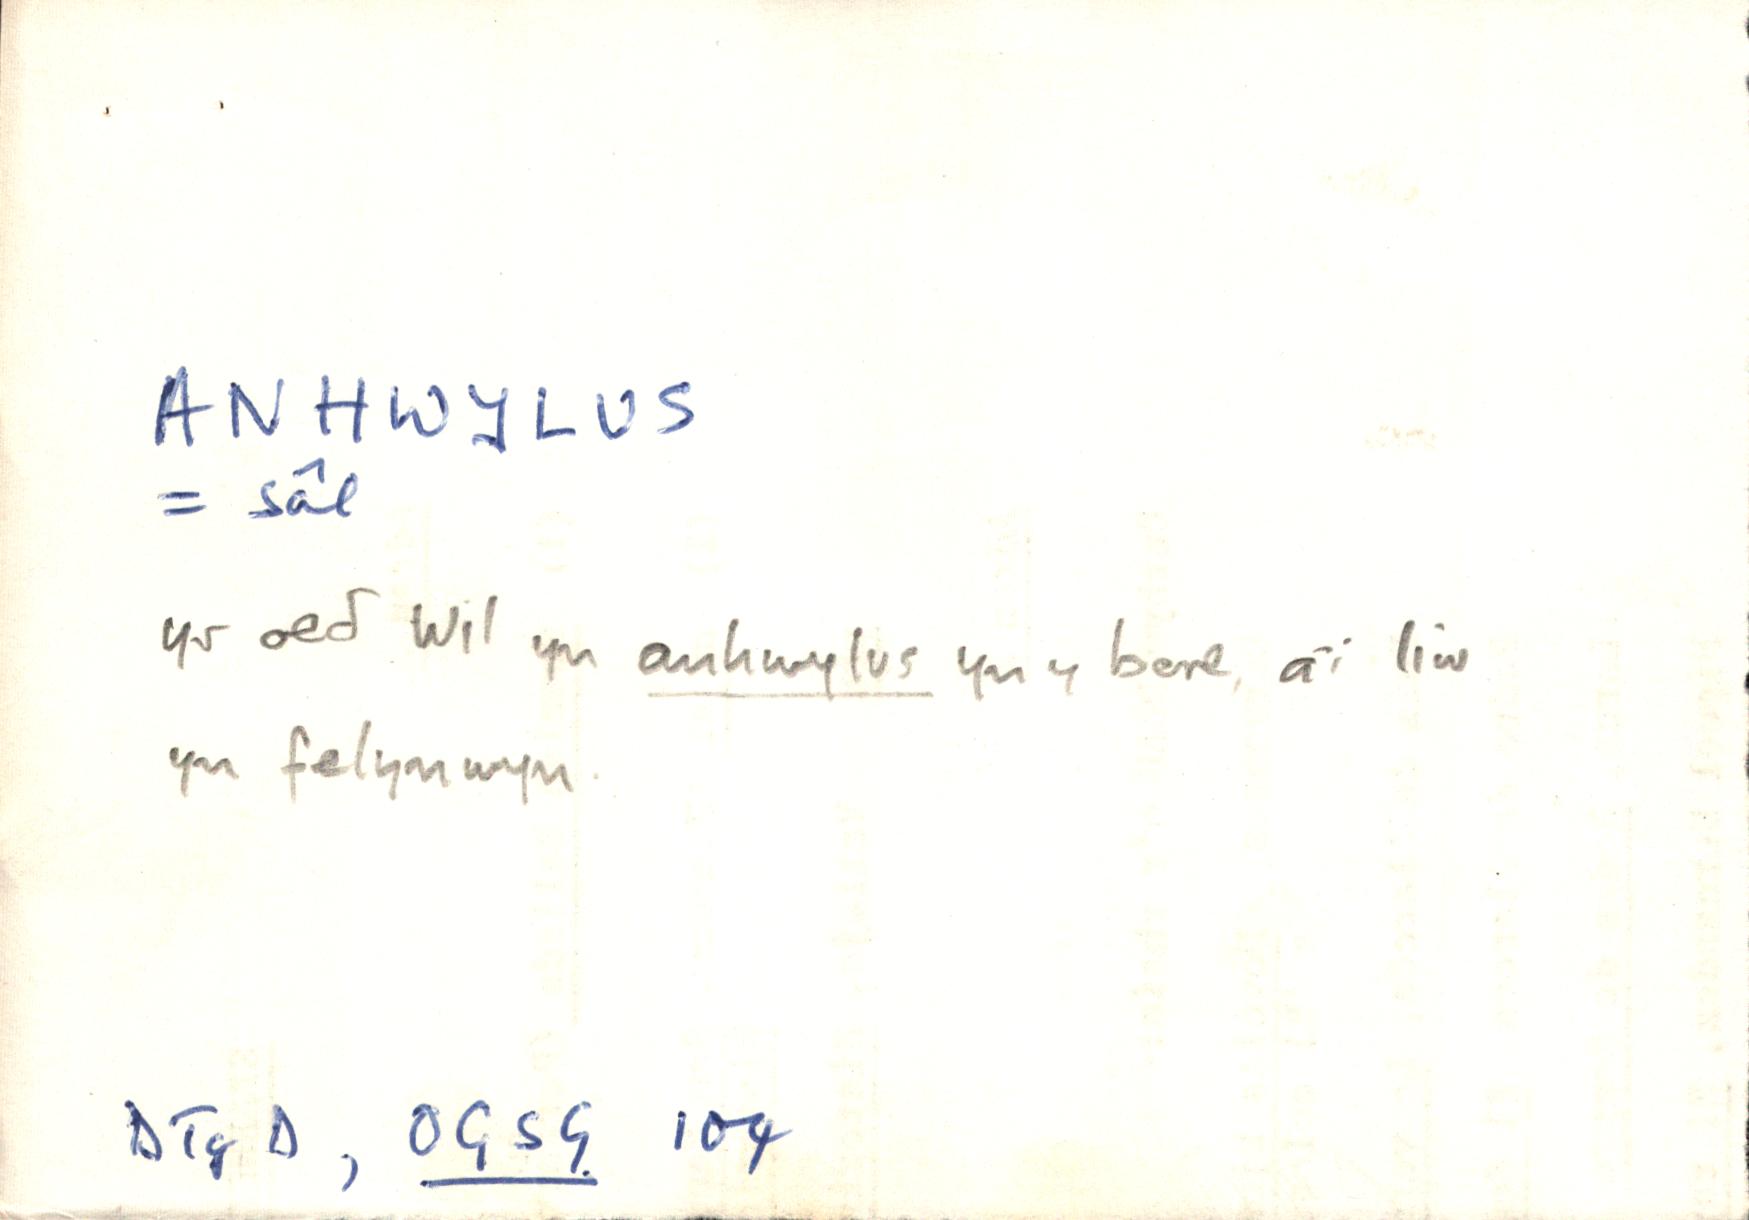 ANHWYLUS
= sâl
yr oeđ Wil yn anhwylus yn y bore, a'i liw
yn felynwyn.
DTgD, OGSG 104